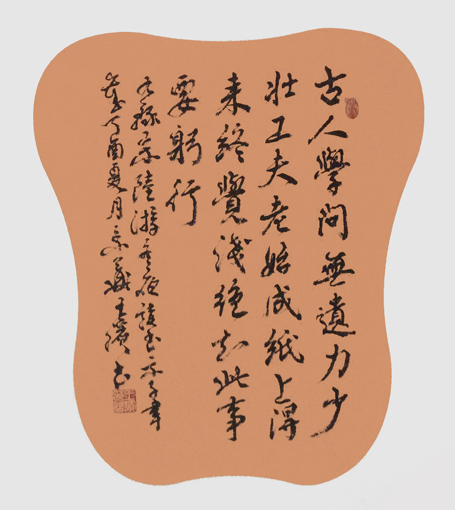 古人學問無遺力少
壯工夫老始成紙上得
來終覺淺絕知此事
要躬行
右錄宋陸游冬夜讀書示子聿
丁酉夏月王書